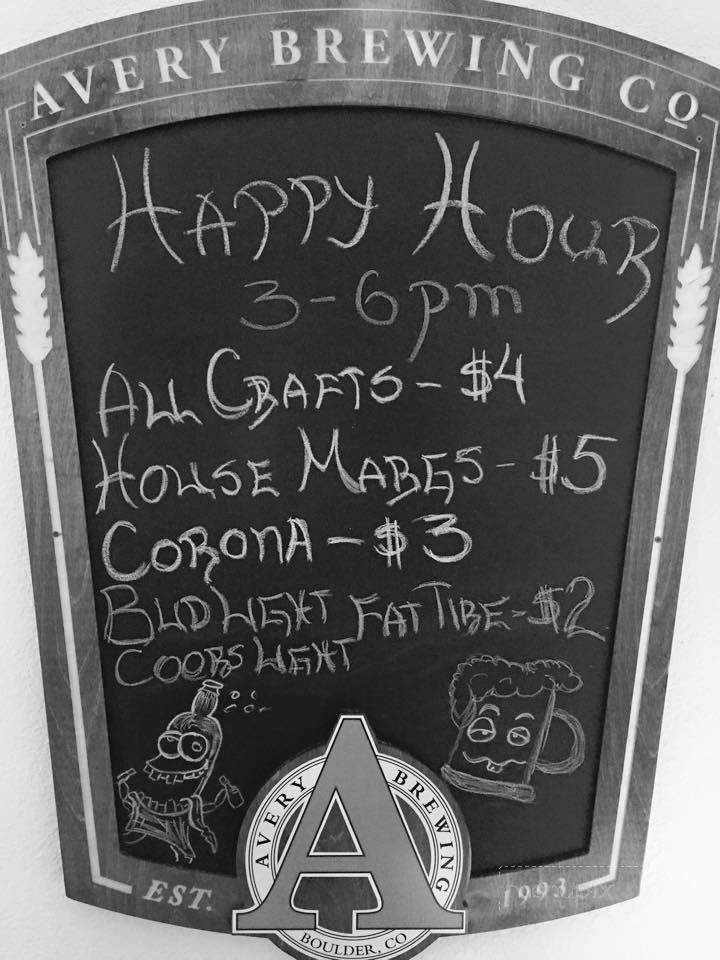 AVERY BREWING CO
HAPPY HOUR
3-6pm
ALL CRAFTS - $4
HOUSE MARGS - $5
CORONA - $3
BUD LIGHT FAT TIRE - $2
COORS LIGHT
AVERY BREWING
A
EST. 1993
BOULDER, CO